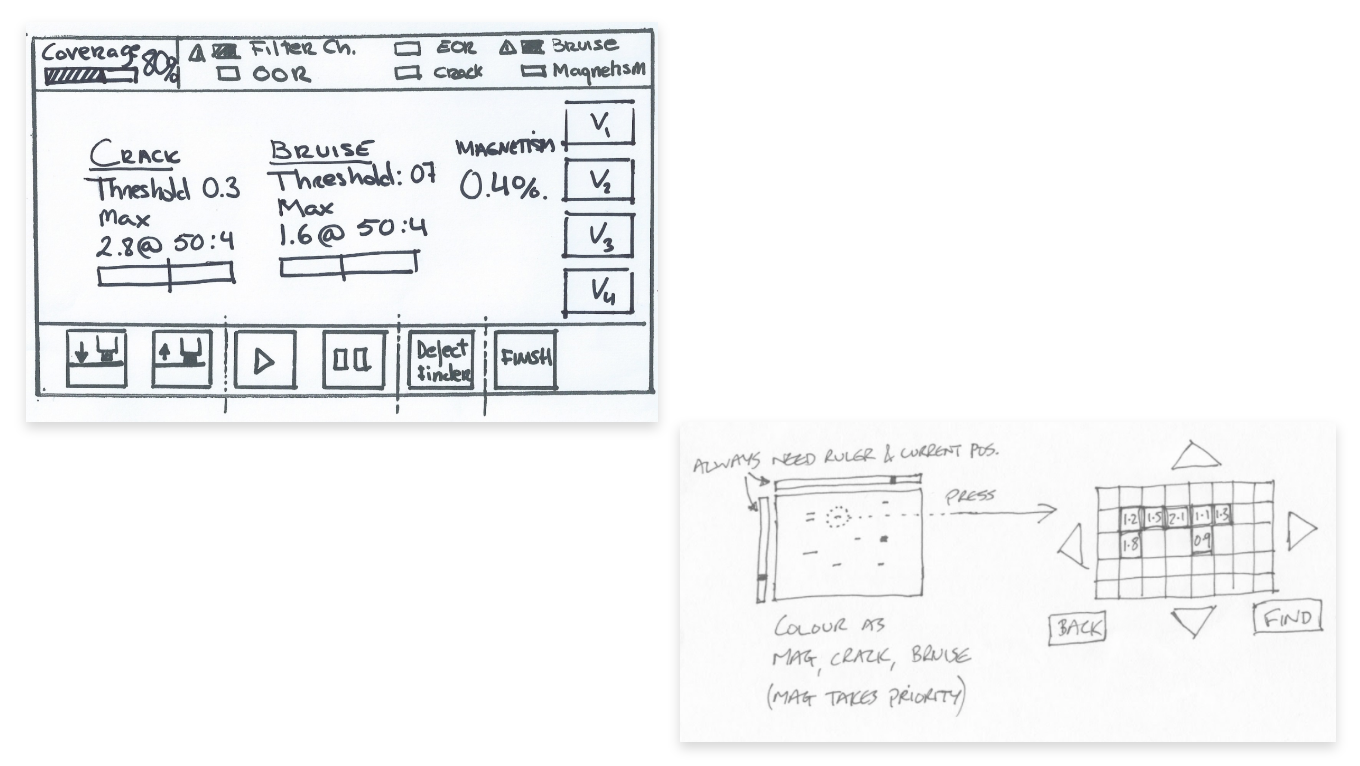 Coverage 80%
Filter Ch.
EOR
Bruise
OOR
Crack
Magnetism
CRACK
Threshold 0.3
Max
2.8@ 50:4
BRUISE
Threshold: 07
Max
1.6@ 50:4
MAGNETISM
0.4%.
V1
V2
V3
V4
Defect
finder
FINISH
ALWAYS NEED RULER & CURRENT POS.
PRESS
1.2 1.5 2.1 1.1 1.3
1.8 0.9
BACK
FIND
COLOUR AS
MAG, CRACK, BRUISE
(MAG TAKES PRIORITY)